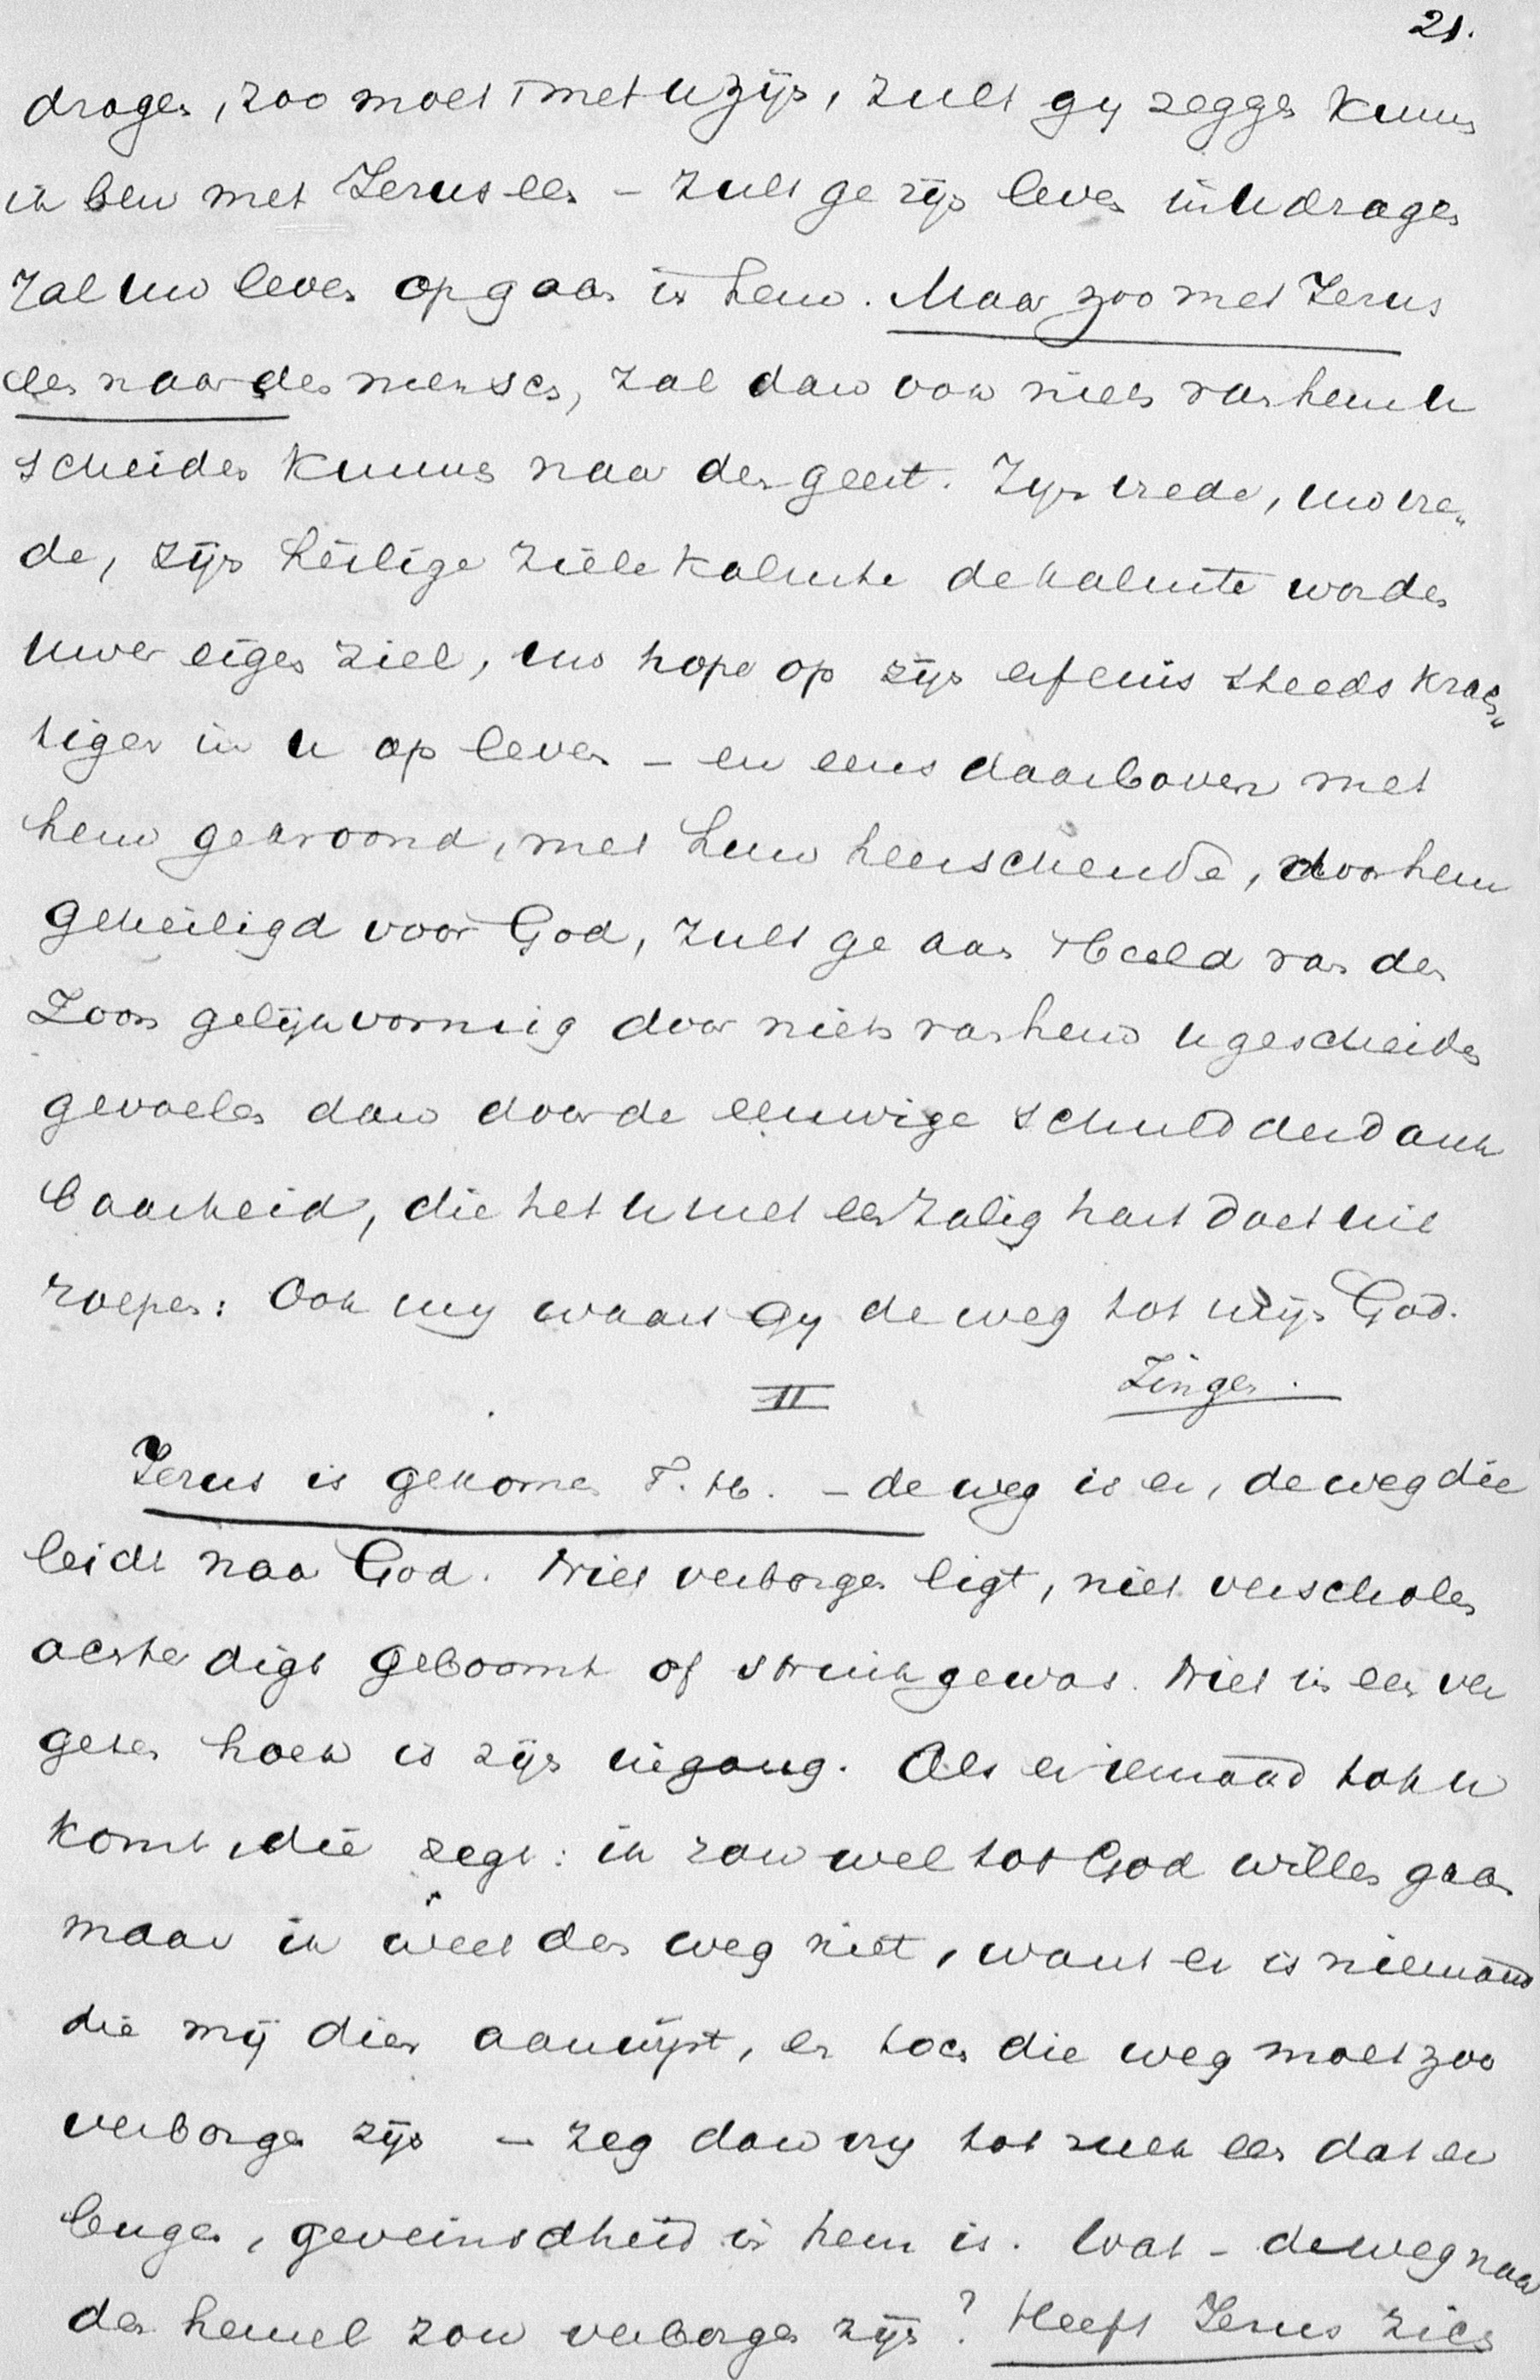 21.
dragen, zoo moet 't met u zijn, zult gy zeggen kunnen
ik ben met Jezus een – zult ge zijn leven in u dragen
zal uw leven opgaan in hem. Maar zoo met Jezus
een naar den mensch, zal dan ook niets van hem u
scheiden kunnen naar den geest. Zijn vrede, uw vre„
de, zijn heilige zielekalmte de kalmte worden
uwer eigen ziel, uw hope op zijn erfenis steeds krach„
tiger in u opleven – en eens daarboven met
hem gekroond, met hem heerschende, door hem
geheiligd voor God, zult ge aan 't beeld van den
Zoon gelijkvormig door niets van hem u gescheiden
gevoelen dan door de eeuwige schuld der dank
baarheid, die het u met een zalig hart doet uit
roepen: Ook my waart Gy de weg tot mijn God.
II Zingen.
Jezus is gekomen T. H. – de weg is er, de weg die
leidt naar God. Niet verborgen ligt, niet verscholen
achter digt geboomt of struikgewas. Niet in een ver
geten hoek is zijn ingang. Als er iemand tot u
komt, die zegt: ik zou wel tot God willen gaan
maar ik weet den weg niet, want er is niemand
die mij dien aanwijst, en toch die weg moet zoo
verborgen zijn – zeg dan vry tot zulk een dat er
leugen, geveinsdheid in hem is. Wat – de weg naar
den hemel zou verborgen zijn? Heeft Jezus zich